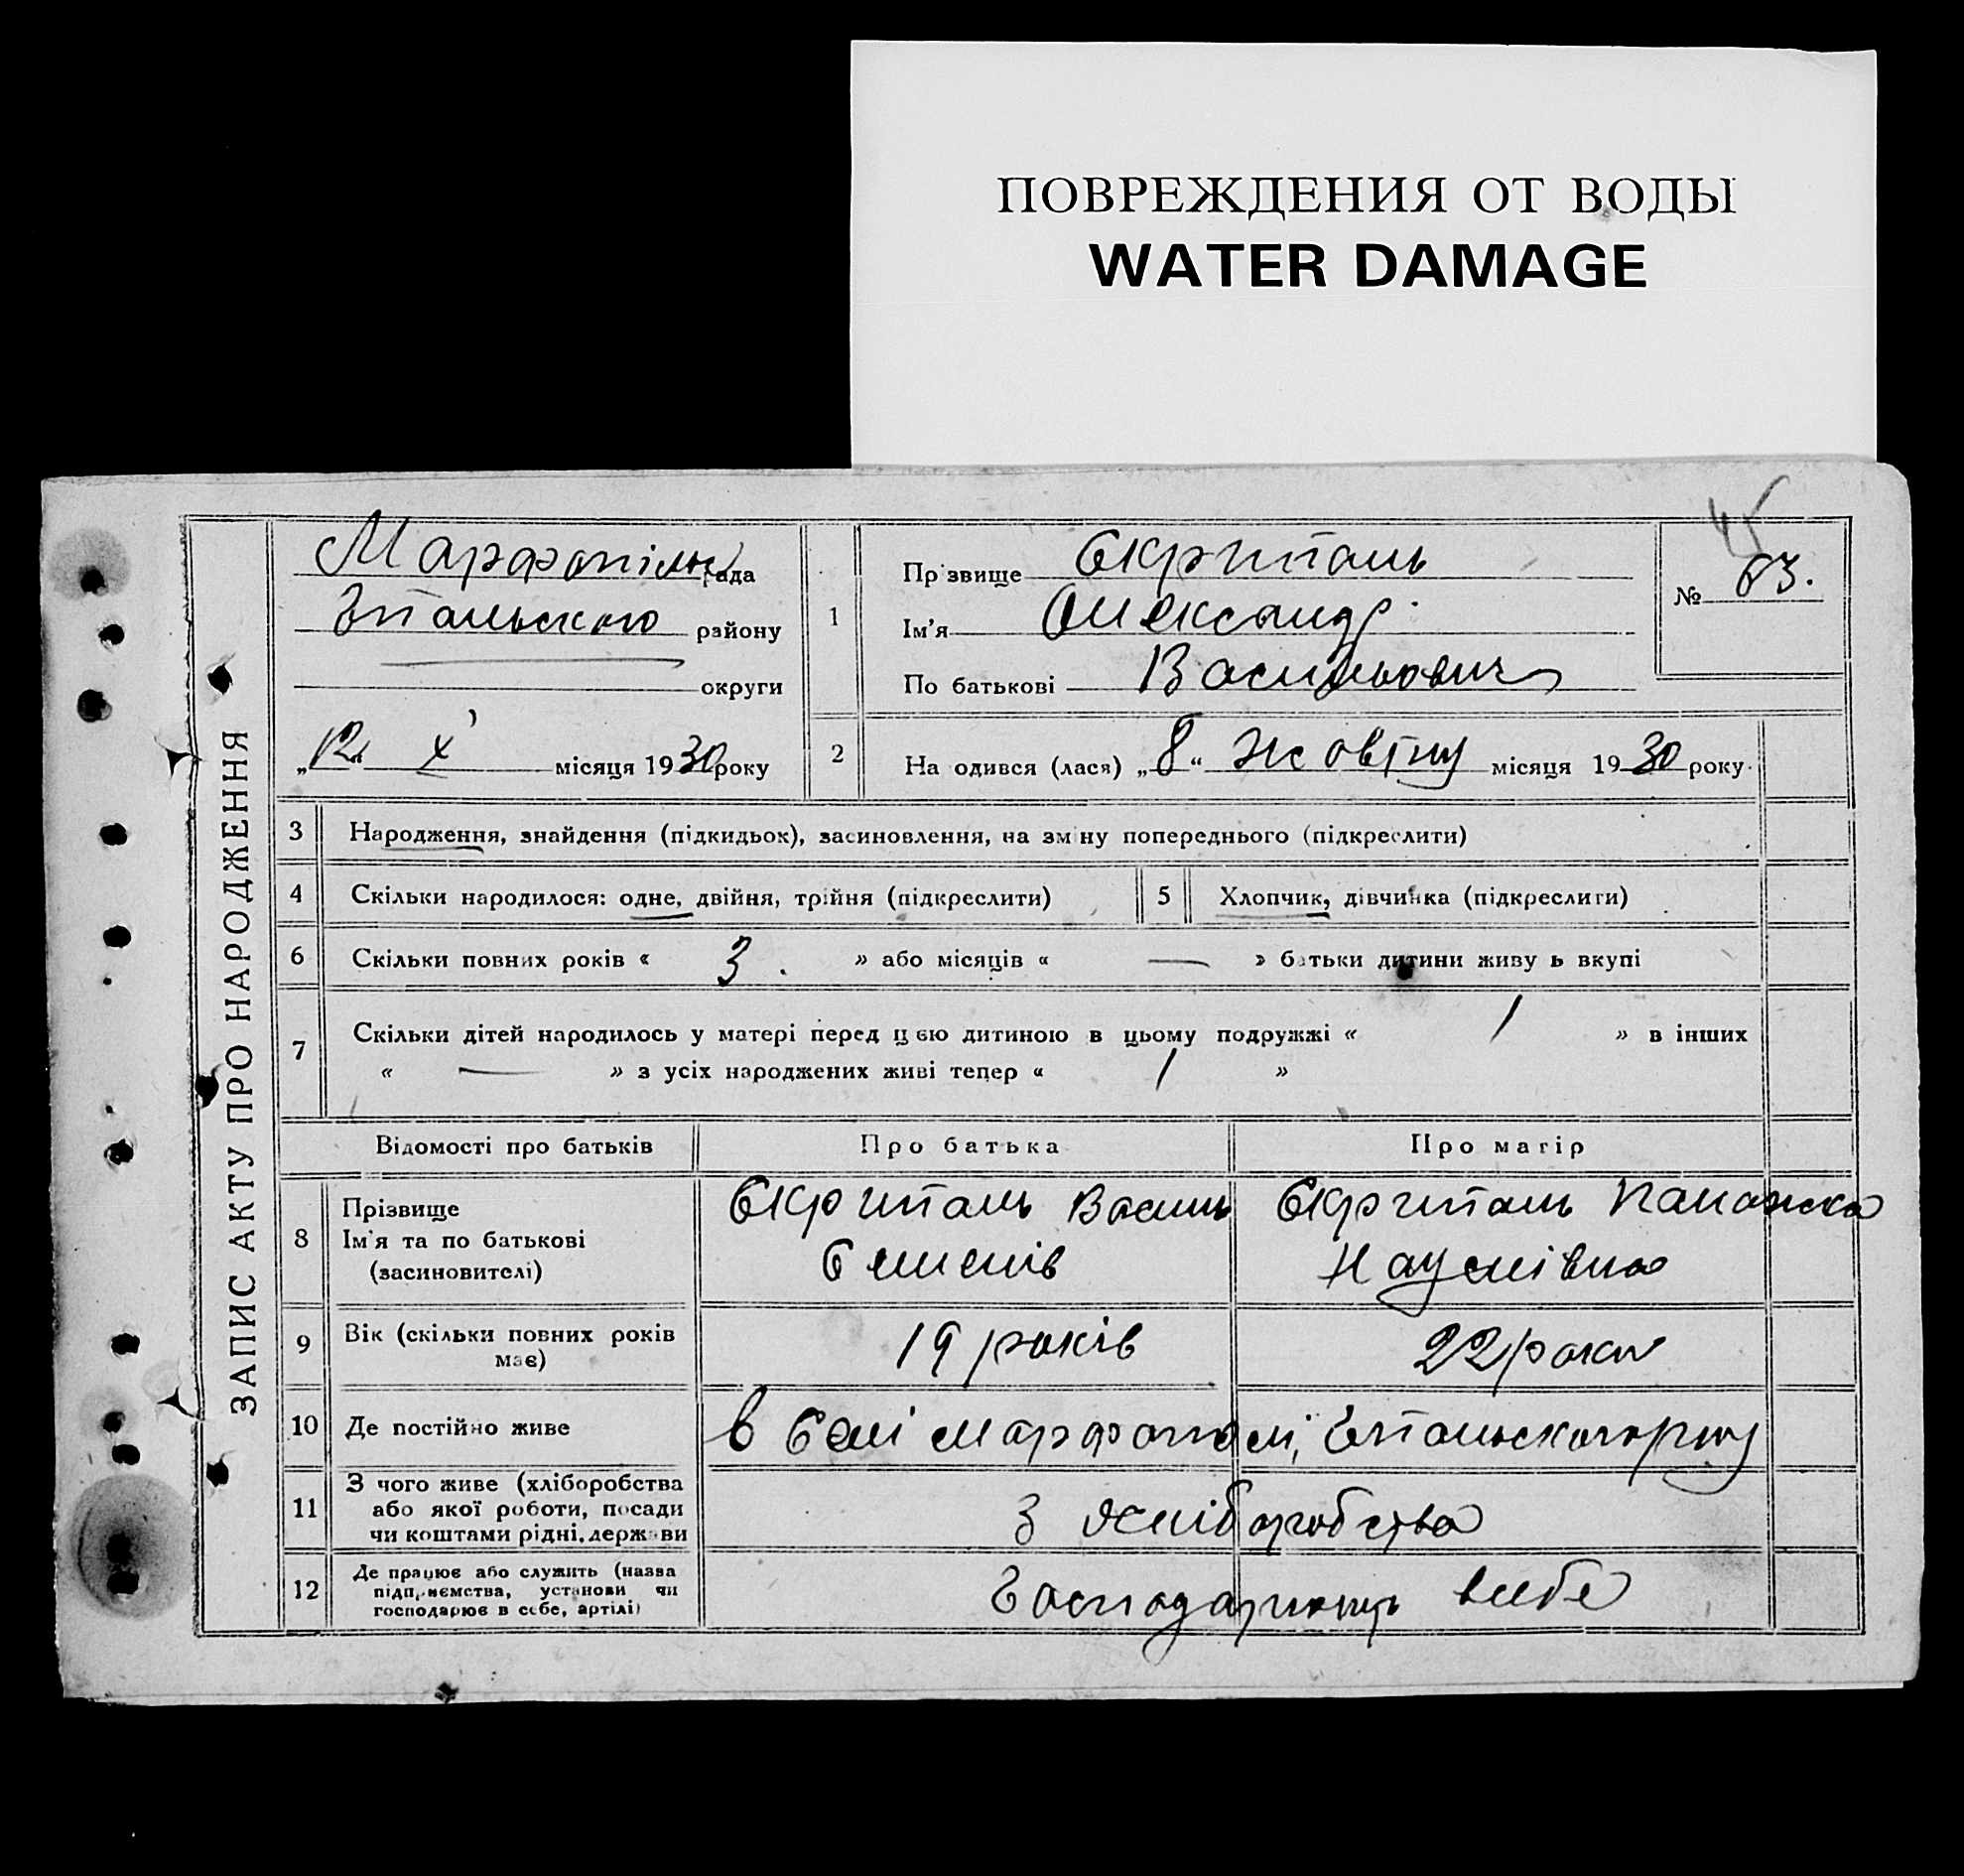 ПОВРЕЖДЕНИЯ ОТ ВОДЫ
WATER DAMAGE
45
ЗАПИС АКТУ ПРО НАРОДЖЕННЯ
Марфопільс рада
району
округи
„12“ X місяця 1930 року
1
Прізвище Скрипаль
Ім'я Олександр
По батькові Васильович
№ 63.
2
На одився (лася) „8“ жовтня місяця 1930 року
3 Народження, знайдення (підкидьок), засиновлення, на зміну попереднього (підкреслити)
4 Скільки народилося: одне, двійня, трійня (підкреслити)
5 Хлопчик, дівчинка (підкреслити)
6 Скільки повних років « 3. » або місяців « — » батьки дитини живу ь вкупі
7 Скільки дітей народилось у матері перед цією дитиною в цьому подружжі « 1 » в інших
« — » з усіх народжених живі тепер « 1 »
Відомості про батьків Про батька Про матір
8 Прізвище
Ім'я та по батькові
(засиновителі)
Скрипаль Василь
Семенів
Скрипаль Панаска
Наумівна
9 Вік (скільки повних років
має)
19 років
22 роки
10 Де постійно живе
в селі Марфополі,
11 З чого живе (хліборобства
або якої роботи, посади
чи коштами рідні, держави
З хліборобства
12 Де працює або служить (назва
підприємства, установи чи
господарює в себе, артілі)
Господарюють в себе